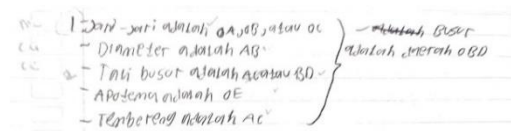 1 Jari-jari adalah OA, OB, atau OC
- Diameter adalah AB
- Tali busur adalah AC atau BD
- Apotema adalah OE
- Tembereng adalah AC
- Busur
adalah daerah OBD